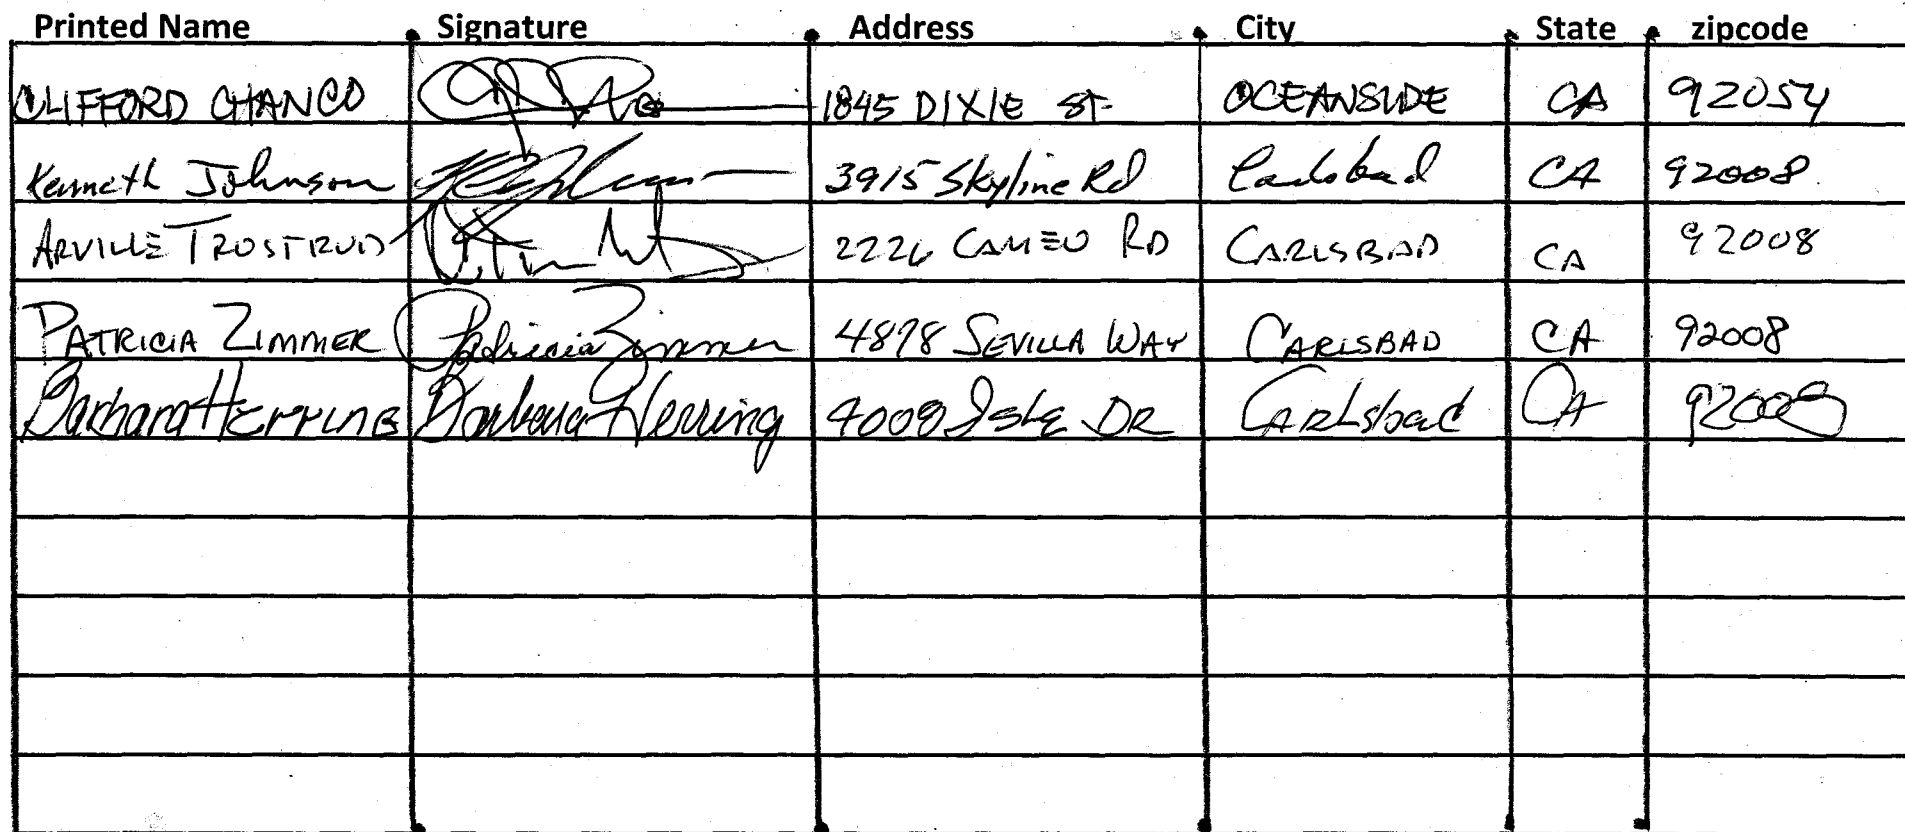 Printed Name Signature Address City State zipcode
CLIFFORD CHANCO 1845 DIXIE ST. OCEANSIDE CA 92054
Kenneth Johnson 3915 Skyline Rd Carlsbad CA 92008
ARVILLE TROSTRUD 2226 CAMEO RD CARLSBAD CA 92008
PATRICIA ZIMMER Patricia Zimmer 4878 SEVILLA WAY CARLSBAD CA 92008
Barbara HERRING Barbara Herring 4009 Isle DR CARLsbad CA 92008